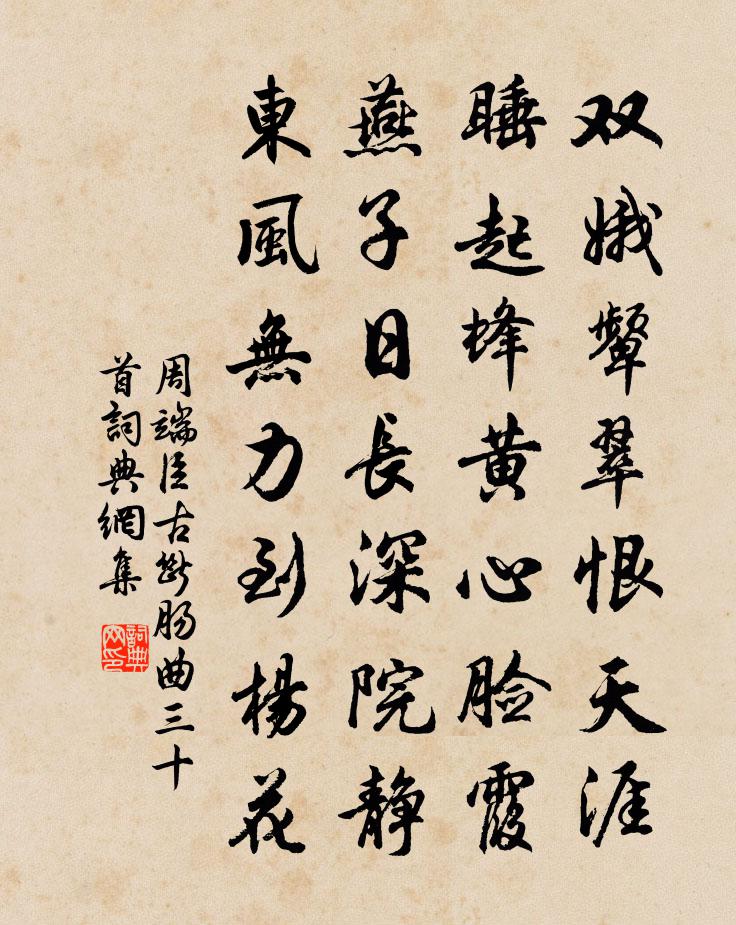 双娥顰翠恨天涯
睡起蜂黄心脸霞
燕子日長深院静
東風無力到楊花
周端臣古断肠曲三十
首詞典網集
詞典
网印